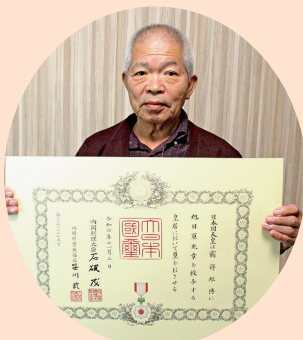 日本国天皇は鶴蒔邦博に
旭日単光章を授与する
皇居において璽をおさせる
大日本
國璽
令和六年十一月三日
内閣総理大臣 石破茂